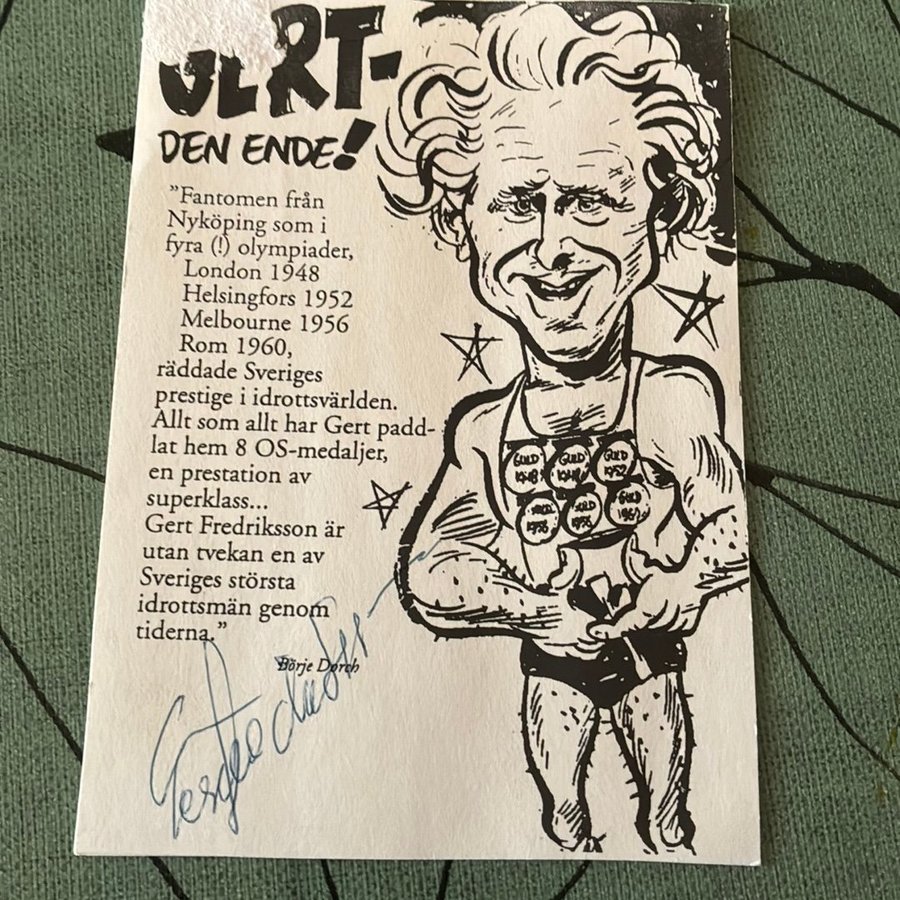 GERT-
DEN ENDE!
"Fantomen från
Nyköping som i
fyra (!) olympiader,
London 1948
Helsingfors 1952
Melbourne 1956
Rom 1960,
räddade Sveriges
prestige i idrottsvärlden.
Allt som allt har Gert padd-
lat hem 8 OS-medaljer,
en prestation av
superklass...
Gert Fredriksson är
utan tvekan en av
Sveriges största
idrottsmän genom
tiderna."
Börje Dorch
GULD
1948
GULD
1948
GULD
1952
1956
1956
GULD